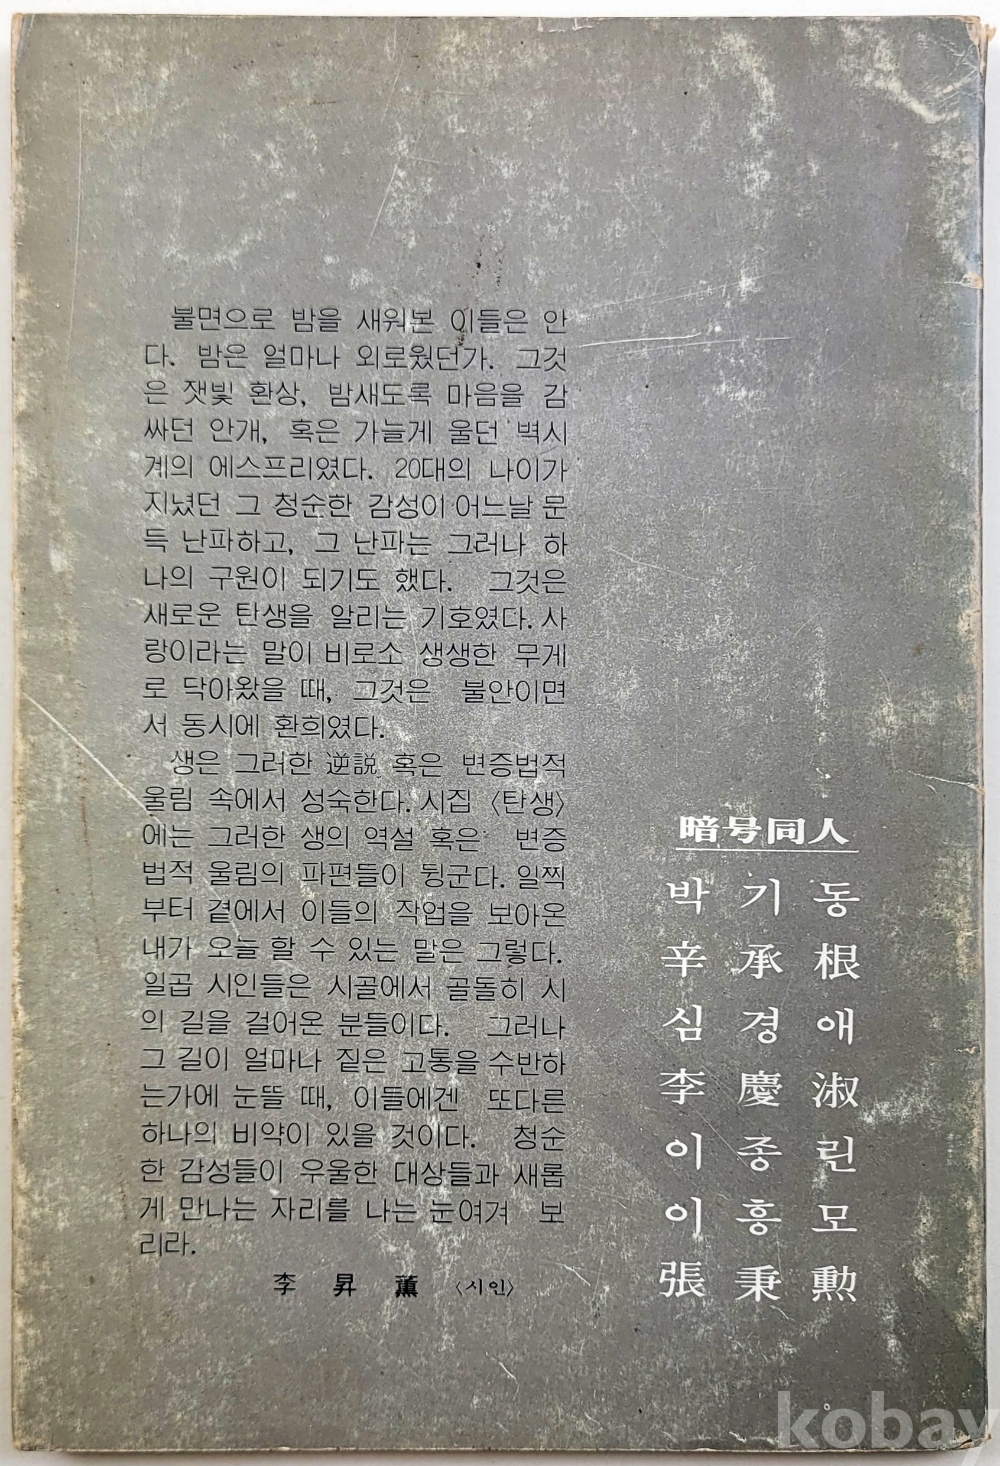 불면으로 밤을 새워본 이들은 안
다. 밤은 얼마나 외로웠던가. 그것
은 잿빛 환상, 밤새도록 마음을 감
싸던 안개, 혹은 가늘게 울던 벽시
계의 에스프리였다. 20대의 나이가
지녔던 그 청순한 감성이 어느날 문
득 난파하고, 그 난파는 그러나 하
나의 구원이 되기도 했다. 그것은
새로운 탄생을 알리는 기호였다. 사
랑이라는 말이 비로소 생생한 무게
로 닥아왔을 때, 그것은 불안이면
서 동시에 환희였다.
생은 그러한 逆説 혹은 변증법적
울림 속에서 성숙한다. 시집 〈탄생〉
에는 그러한 생의 역설 혹은 변증
법적 울림의 파편들이 뒹군다. 일찍
부터 곁에서 이들의 작업을 보아온
내가 오늘 할 수 있는 말은 그렇다.
일곱 시인들은 시골에서 골돌히 시
의 길을 걸어온 분들이다. 그러나
그 길이 얼마나 짙은 고통을 수반하
는가에 눈뜰 때, 이들에겐 또다른
하나의 비약이 있을 것이다. 청순
한 감성들이 우울한 대상들과 새롭
게 만나는 자리를 나는 눈여겨 보
리라.
李 昇 薰 〈시인〉
暗号同人
박 기 동
辛 承 根
심 경 애
李 慶 淑
이 종 린
이 흥 모
張 秉 勲
kobay